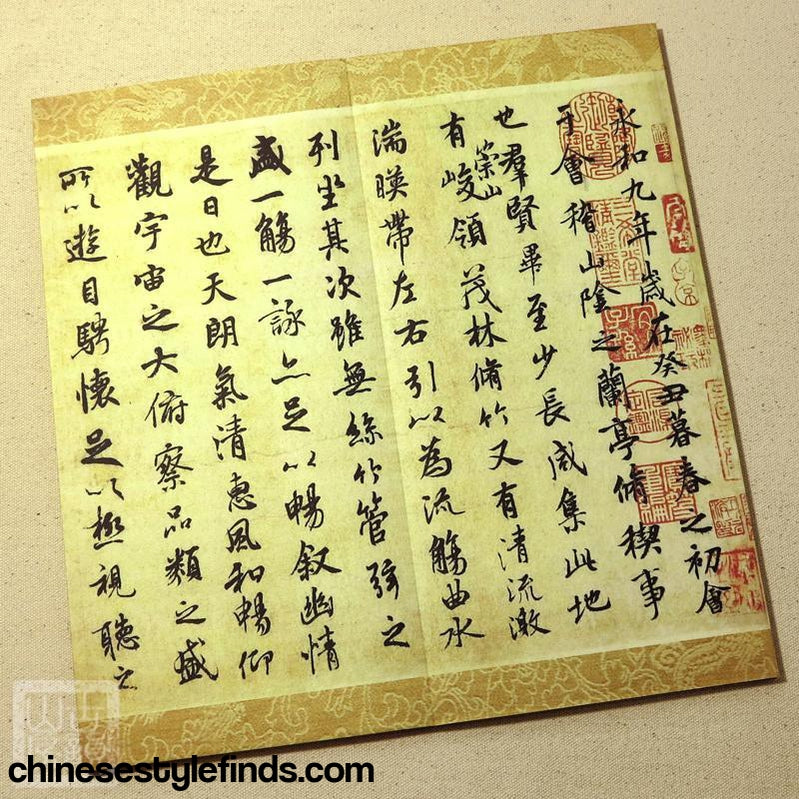 永和九年歲在癸丑暮春之初會
于會稽山陰之蘭亭脩稧事
也羣賢畢至少長咸集此地
有崇山峻領茂林脩竹又有清流激
湍暎帶左右引以為流觴曲水
列坐其次雖無絲竹管弦之
盛一觴一詠亦足以暢叙幽情
是日也天朗氣清惠風和暢仰
觀宇宙之大俯察品類之盛
所以遊目騁懷足以極視聽之
chinesestylefinds.com